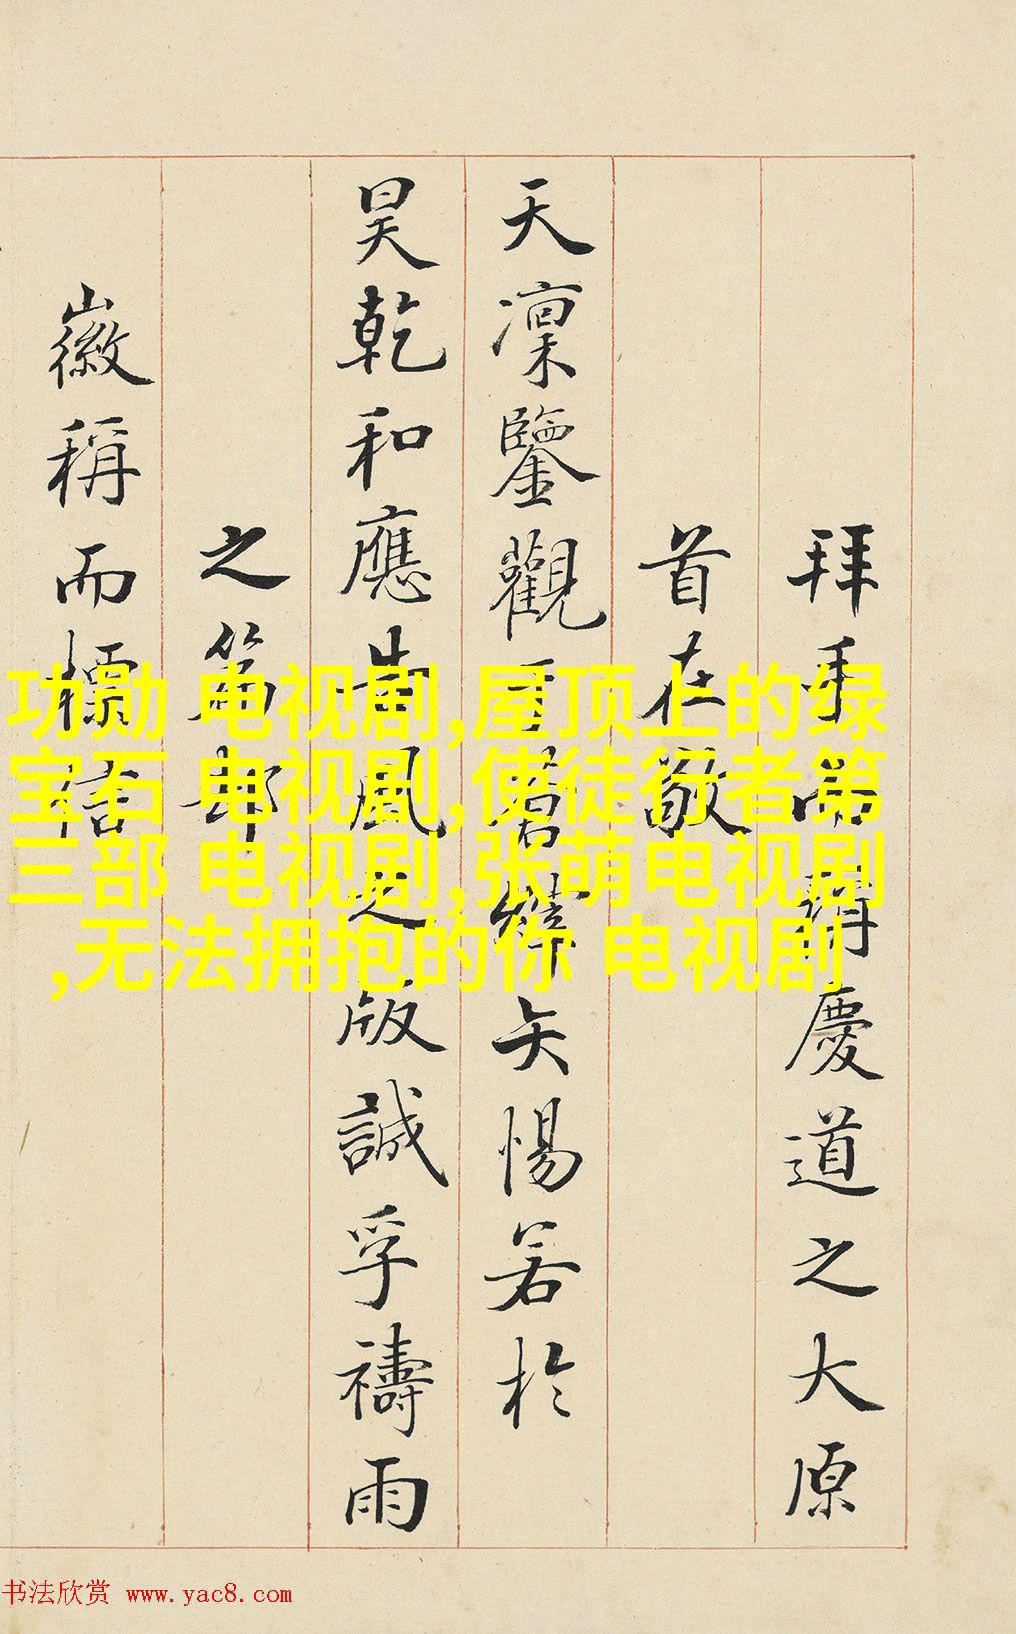 拜手
慶道之大原
首在敬
天凜鑒觀
矢惕若於
昊乾和應
風之版誠孚禱雨
之篇
徽稱而
功勋 电视剧,屋顶上的绿
宝石 电视剧,使徒行者第
三部 电视剧,张萌电视剧
,无法拥抱的你 电视剧
书法欣赏 www.yac8.com